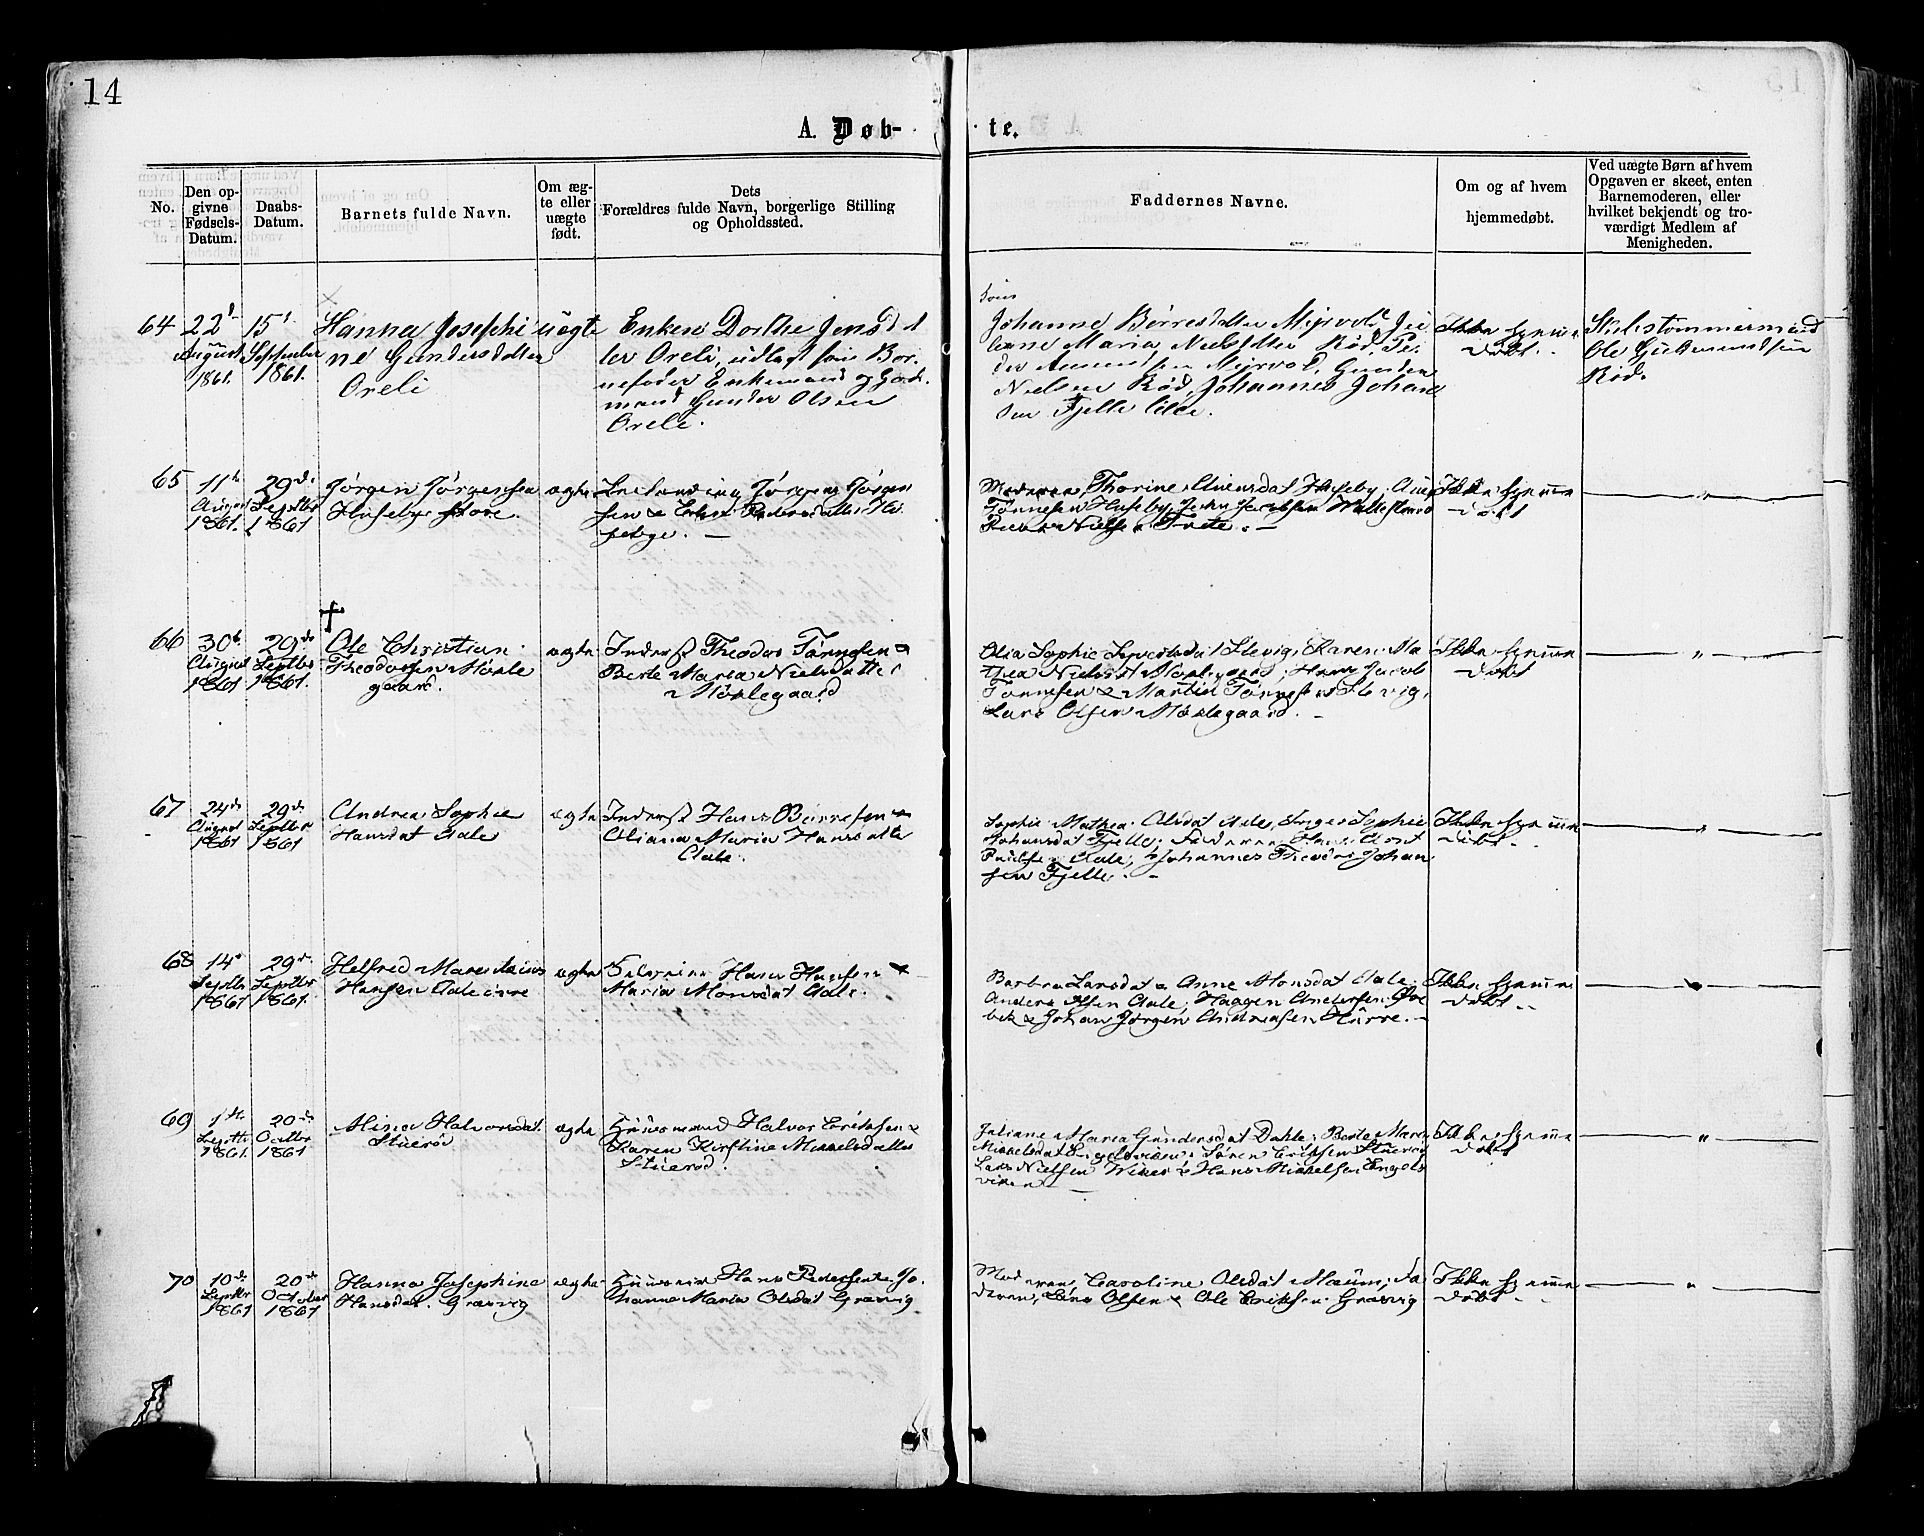 14
A. Døb-
te.
No.
Den op-
givne
Fødsels-
Datum.
Daabs-
Datum.
Barnets fulde Navn.
Om æg-
te eller
uægte
født.
Dets
Forældres fulde Navn, borgerlige Stilling
og Opholdssted.
Faddernes Navne.
Om og af hvem
hjemmedøbt.
Ved uægte Børn af hvem
Opgaven er skeet, enten
Barnemoderen, eller
hvilket bekjendt og tro-
værdigt Medlem af
Menigheden.
64
22
August
1861.
15
September
1861.
Hanna Josephi
ne Gundersdatter
Oreli
uægte
Enken Dorthe Jensdat
ter Oreli, udlagt som Bar-
nefader Enkemand og Gaard
mand Gunder Olsen
Oreli.
Johanne Børresdatter Mijrvold,
Maria Nielsdatter Rød, Pe-
der Amundsen Mijrvold, Gunder
Nielsen Rød, Johannes Johan
sen Fjelle lille.
Ikke hjemme
døbt.
Skibstømmermand
Ole Gudmundsen
Rød.
65
11
August
1861.
29
Septbr
1861
Jørgen Jørgensen
Huseby store.
ægte
Jørgen Jørgen
sen & Pedersdatter Hu
seby.
Moderen, Thorine Huseby,
Tønnesen Huseby,
Nielsen
Ikke hjemme
døbt
66
30
August
1861
29
Septbr
1861.
Ole Christian
Theodorsen Møkle
gaard.
ægte
Inderst Theodor Tønnesen &
Berte Maria Nielsdatter
Møklegaard
Olia Sophie Karen Ma
thea Hans Jacob
Tønnesen & Martin Tønnesen
Lars Olsen Møklegaard.
Ikke hjemme
døbt
67
24
August
1861
29
Septbr
1861
Andrea Sophie
Hansdat Aale
ægte
Inderst Hans Børresen &
Oliana Maria Hansdatter
Aale.
Sophie Mathea Olsdat Aale, Inger Sophie
Johansdat Fjelle, Faderen,
Aale, Johannes Theodor Johan
sen Fjelle.
Ikke hjemme
døbt.
68
14
Septbr
1861
29
Septbr
1861.
Helfred
Hansen Aale
ægte
Hans Hansen &
Maria Monsdat Aale.
Barbra Larsdat & Anne Monsdat Aale,
Anders Olsen Aale, Haagen Andersen
& Johan Jørgen Andreasen
Ikke hjemme
døbt
69
1
Septbr
1861.
20
Octbr
1861
Mina Halvorsdat
Stuerød
ægte
Huusmand Halvor Eriksen &
Karen Kirstine Mikkelsdatter
Stuerød.
Juliane Maria Gundersdat Dahle, Berte Marie
Mikkelsdat Engelsviken, Søren Eriksen
Lars Nielsen Viker & Hans Mikkelsen Engels
viken
Ikke hjemme
døbt
70
10
Septbr
1861
20
October
1861
Hanna Josephine
Hansdat. Græsvig
ægte
Huusmand Hans Pedersen & Jo
hanne Maria Olsdat Græsvig
Moderen, Caroline Olsdat Maum, Fa
deren, Olsen & Ole Eriksen Græsvig
Ikke hjemme
døbt